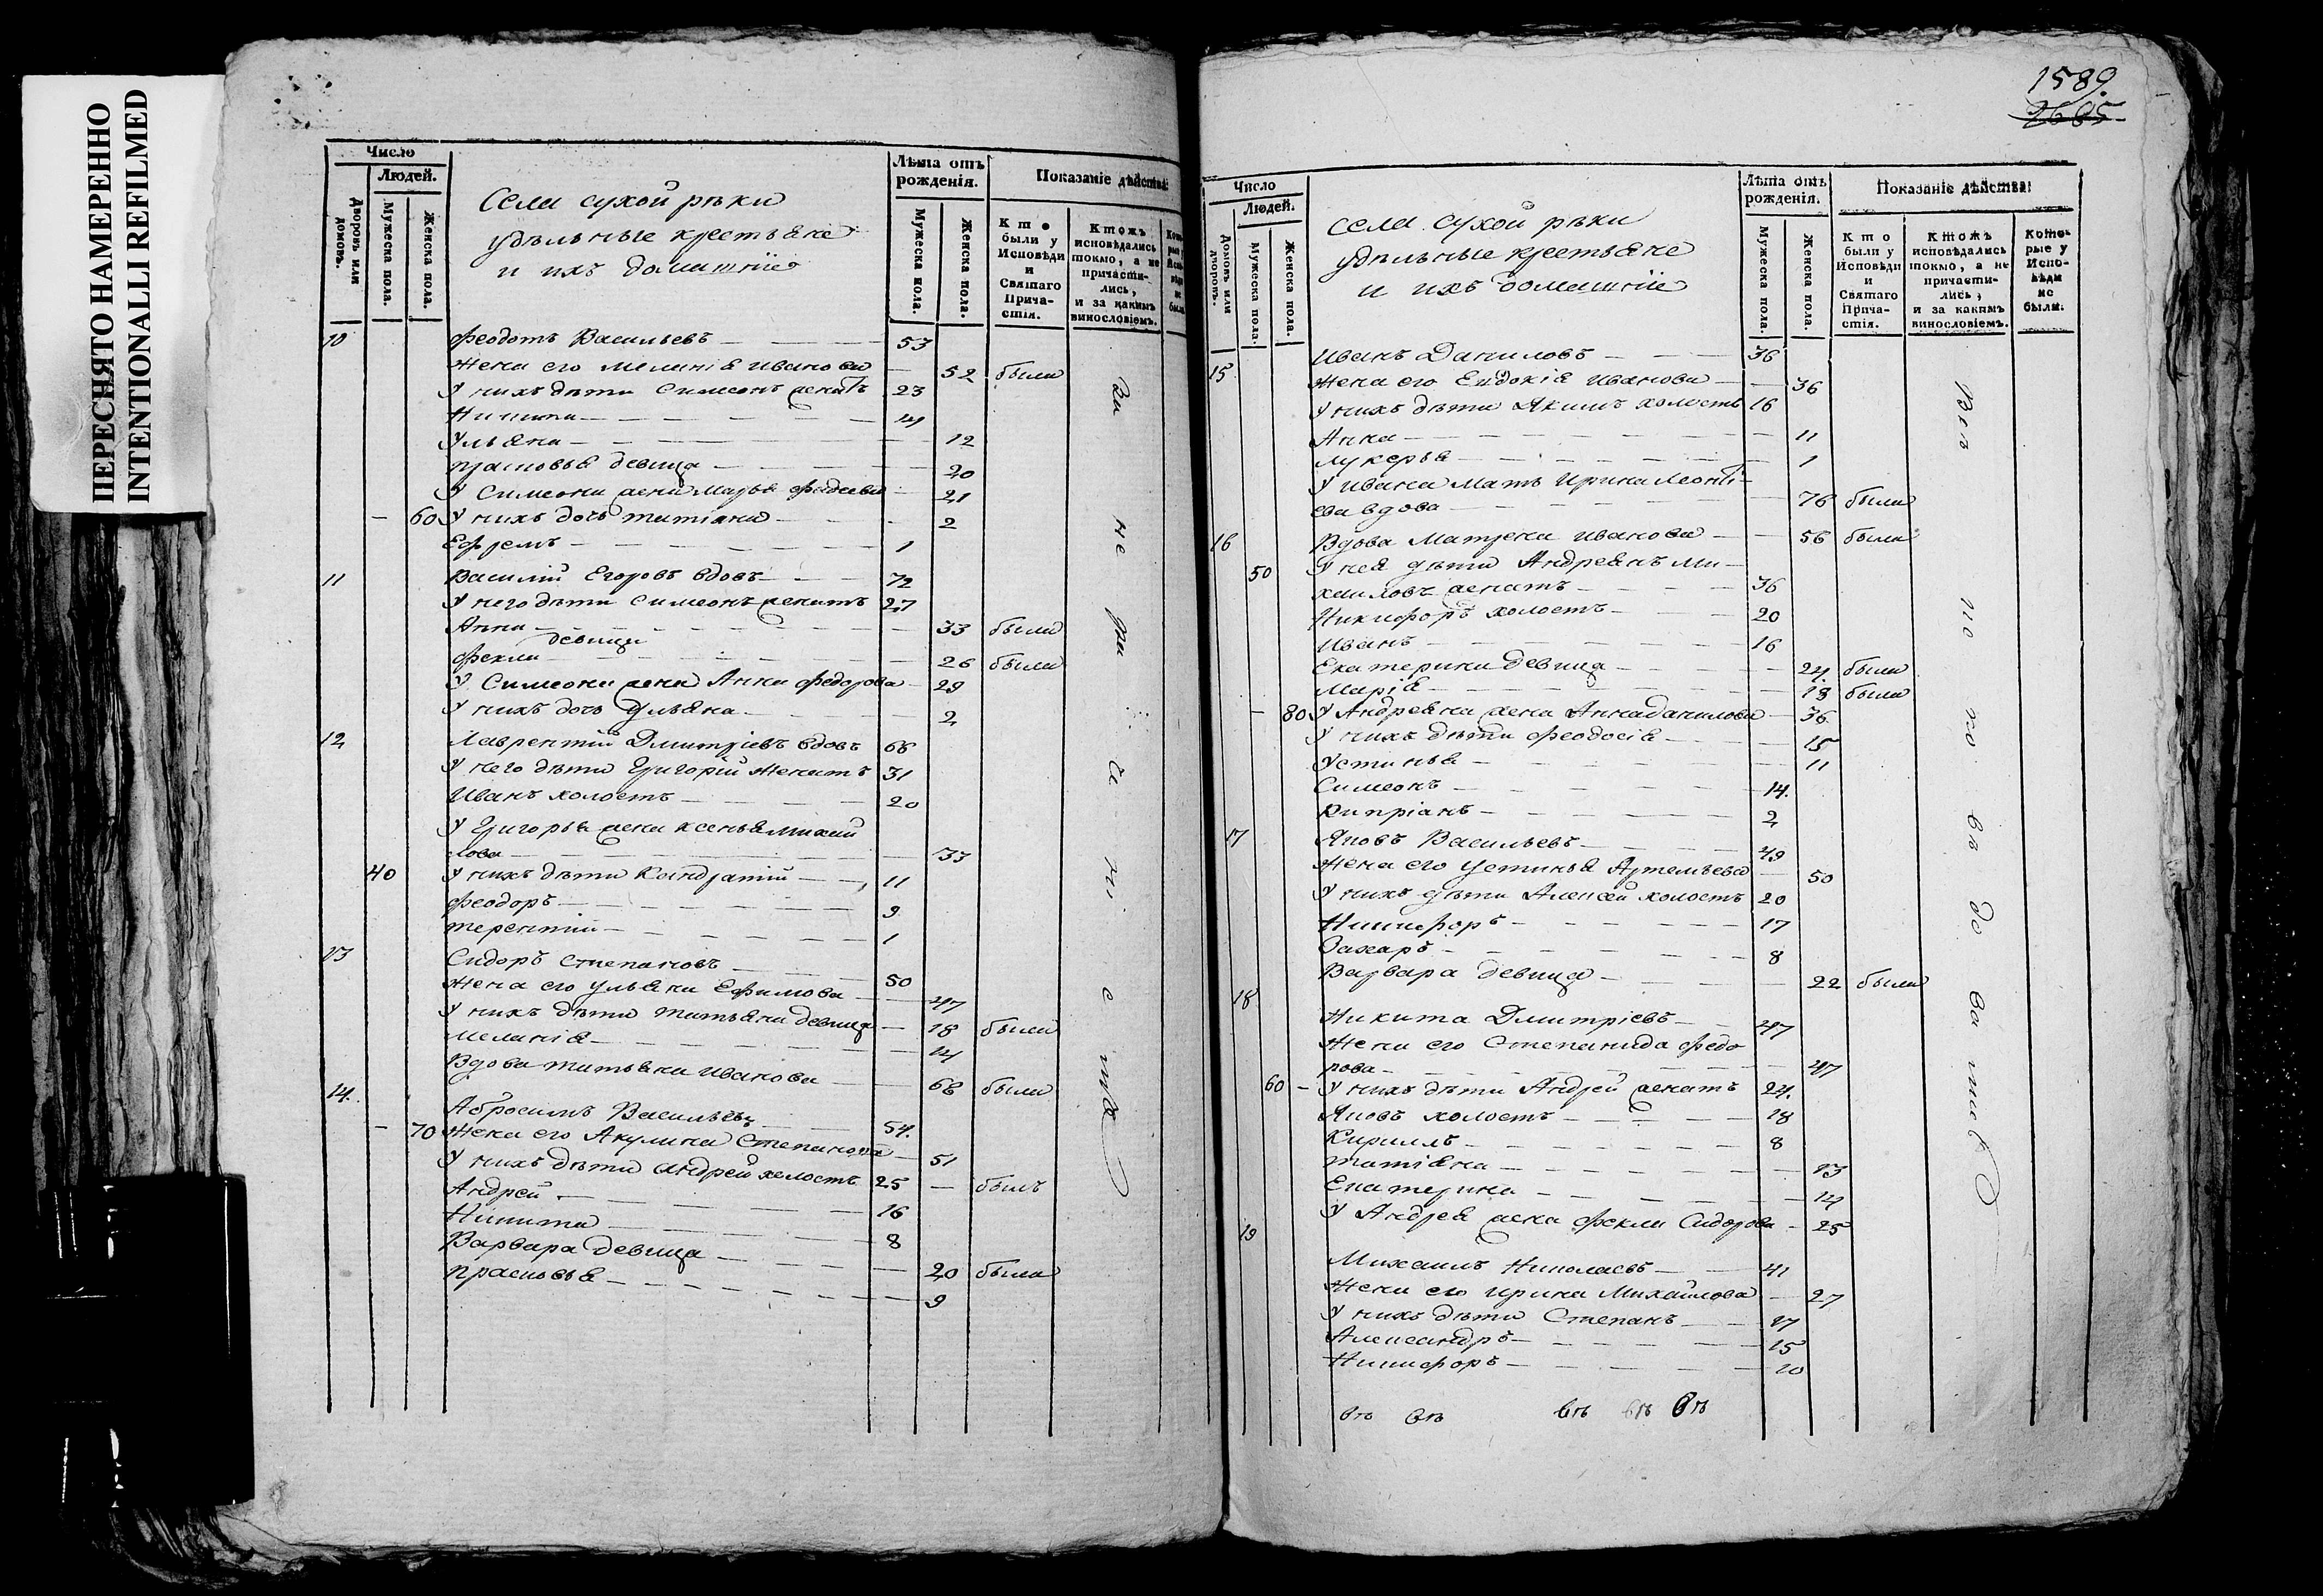 ПЕРЕСНЯТО НАМЕРЕННО
INTENTIONALLI REFILMED
Число
Людей.
Дворовъ или домовъ.
Мужеска пола.
Женска пола.
Села сухой рѣки
удѣльные крестьяне
и ихъ домашніе
Лѣта отъ рожденія.
Мужеска пола.
Женска пола.
Показаніе дѣйства:
Кто были у Исповѣди и Святаго Причастія.
Ктожъ исповѣдались токмо, а не причастились, и за какимъ винословіемъ.
10 Феодотъ Васильевъ — 53
Жена его Меланія Иванова — 52 была
У нихъ дѣти Симеонъ женатъ 23
Никита — 14
Ульяна — 12
Прасковья девица — 20
У Симеона жена Марья Фадеева — 21
— 60 У нихъ дочь Татіана — 2
Ефремъ — 1
11 Василій Егоровъ вдовъ — 72
У него дѣти Симеонъ женатъ 27
Анна — 33 была
девицы
Фекла — 26 была
У Симеона жена Анна Федорова — 29
У нихъ дочь Ульяна — 2
12 Лаврентій Дмитріевъ вдовъ 66
У него дѣти Григорій женатъ 31
Иванъ холостъ — 20
У Григорья жена Ксенья Михай
лова — 33
40 У нихъ дѣти Кандратій — 11
Феодоръ — 9
Терентій — 1
13 Сидоръ Степановъ — 50
Жена его Ульяна Ефимова — 47
У нихъ дѣти Татьяна девица — 18 была
Меланія — 14
Вдова Татьяна Иванова — 68 была
14. Абросимъ Васильевъ — 54.
— 70 Жена его Акулина Степанова — 51
У нихъ дѣти Андрей холостъ 25 — былъ
Андрей — 16
Никита — 8
Варвара девица — 20 была
Прасковья — 9
1589
2665
Число
Людей.
Домовъ или дворовъ.
Мужеска пола.
Женска пола.
Села Сухой рѣки
удѣльные крестьяне
и ихъ домашніе
Лѣта отъ рожденія.
Мужеска пола.
Женска пола.
Показаніе дѣйства:
Кто были у Исповѣди и Святаго Причастія.
Ктожъ исповѣдались токмо, а не причастились, и за какимъ винословіемъ.
Которые у Исповѣди не были.
Иванъ Даниловъ — 36
15 Жена его Евдокія Иванова — 36
У нихъ дѣти Якимъ холостъ 16
Анна — 11
Лукерья — 1
У Ивана мать Ирина Леонті-
ева вдова — 76 была
16 Вдова Матрена Иванова — 56 была
50 У нея дѣти Андреянъ Ми-
хаиловъ женатъ — 36
Никифоръ холостъ — 20
Иванъ — 16
Екатерина девица — 24. была
Марія — 18 была
— 80 У Андреяна жена Анна Данилова — 36
У нихъ дѣти Феодосія — 15
Устинья — 11
Симеонъ — 14.
Кипріанъ — 2
17 Яковъ Васильевъ — 49
Жена его Устинья Артемьева — 50
У нихъ дѣти Алексей холостъ 20
Никифоръ — 17
Захаръ — 8
Варвара девица — 22 была
18 Никита Дмитріевъ — 47
Жена его Степанида Федо
рова — 47
60 — У нихъ дѣти Андрей женатъ 24.
Яковъ холостъ — 18
Кириллъ — 8
Татіяна — 13
Екатерина — 14
У Андрея жена Фекла Сидорова — 25
19 Михаилъ Николаевъ — 41
Жена его Ирина Михайлова — 27
У нихъ дѣти Степанъ — 17
Александръ — 15
Никифоръ — 10